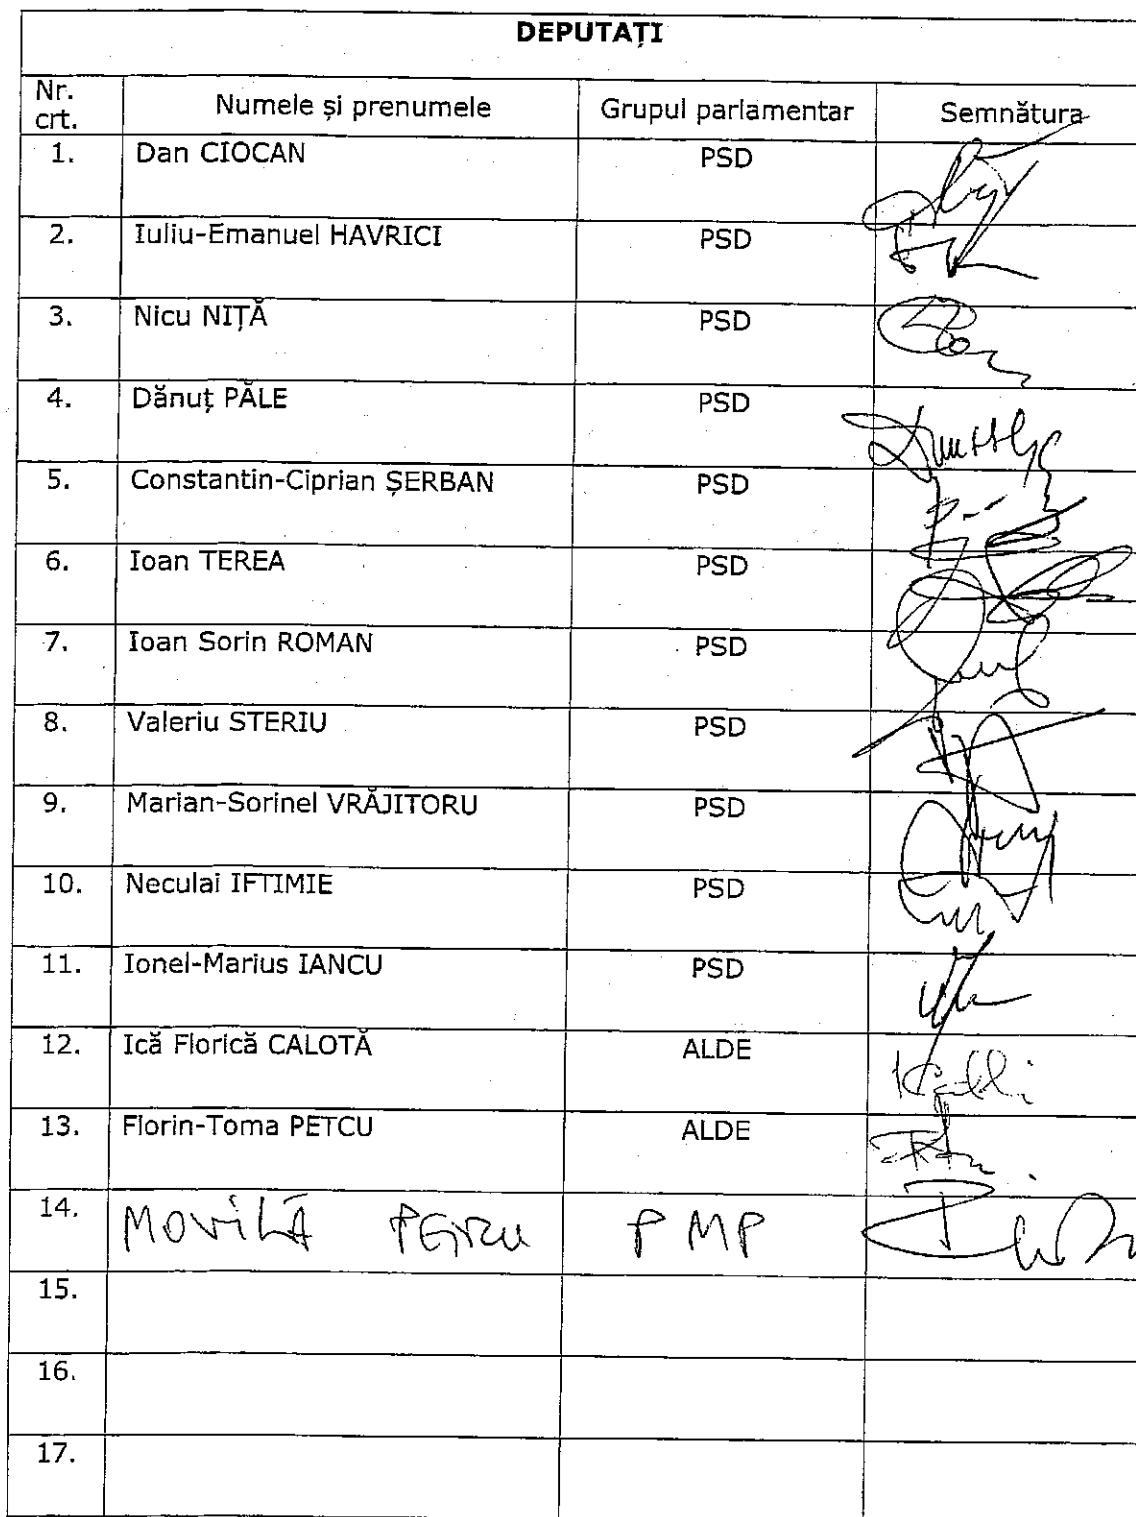 DEPUTAȚI
Nr. crt. Numele și prenumele Grupul parlamentar Semnătura
1. Dan CIOCAN PSD
2. Iuliu-Emanuel HAVRICI PSD
3. Nicu NIȚĂ PSD
4. Dănuț PĂLE PSD
5. Constantin-Ciprian ȘERBAN PSD
6. Ioan TEREA PSD
7. Ioan Sorin ROMAN PSD
8. Valeriu STERIU PSD
9. Marian-Sorinel VRĂJITORU PSD
10. Neculai IFTIMIE PSD
11. Ionel-Marius IANCU PSD
12. Ică Florică CALOTĂ ALDE
13. Florin-Toma PETCU ALDE
14. MOVILĂ PETRU PMP
15.
16.
17.